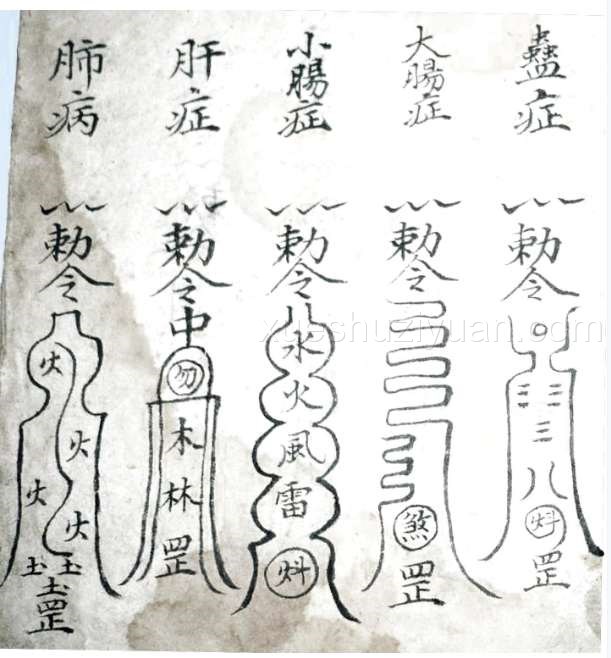 蠱症
勅令
三
八
㪵
罡
大腸症
勅令
煞
罡
小腸症
勅令
水
火
風
雷
㪵
肝症
勅令
中
勿
木
林
罡
肺病
勅令
火
火
火
火
土 土
土
罡